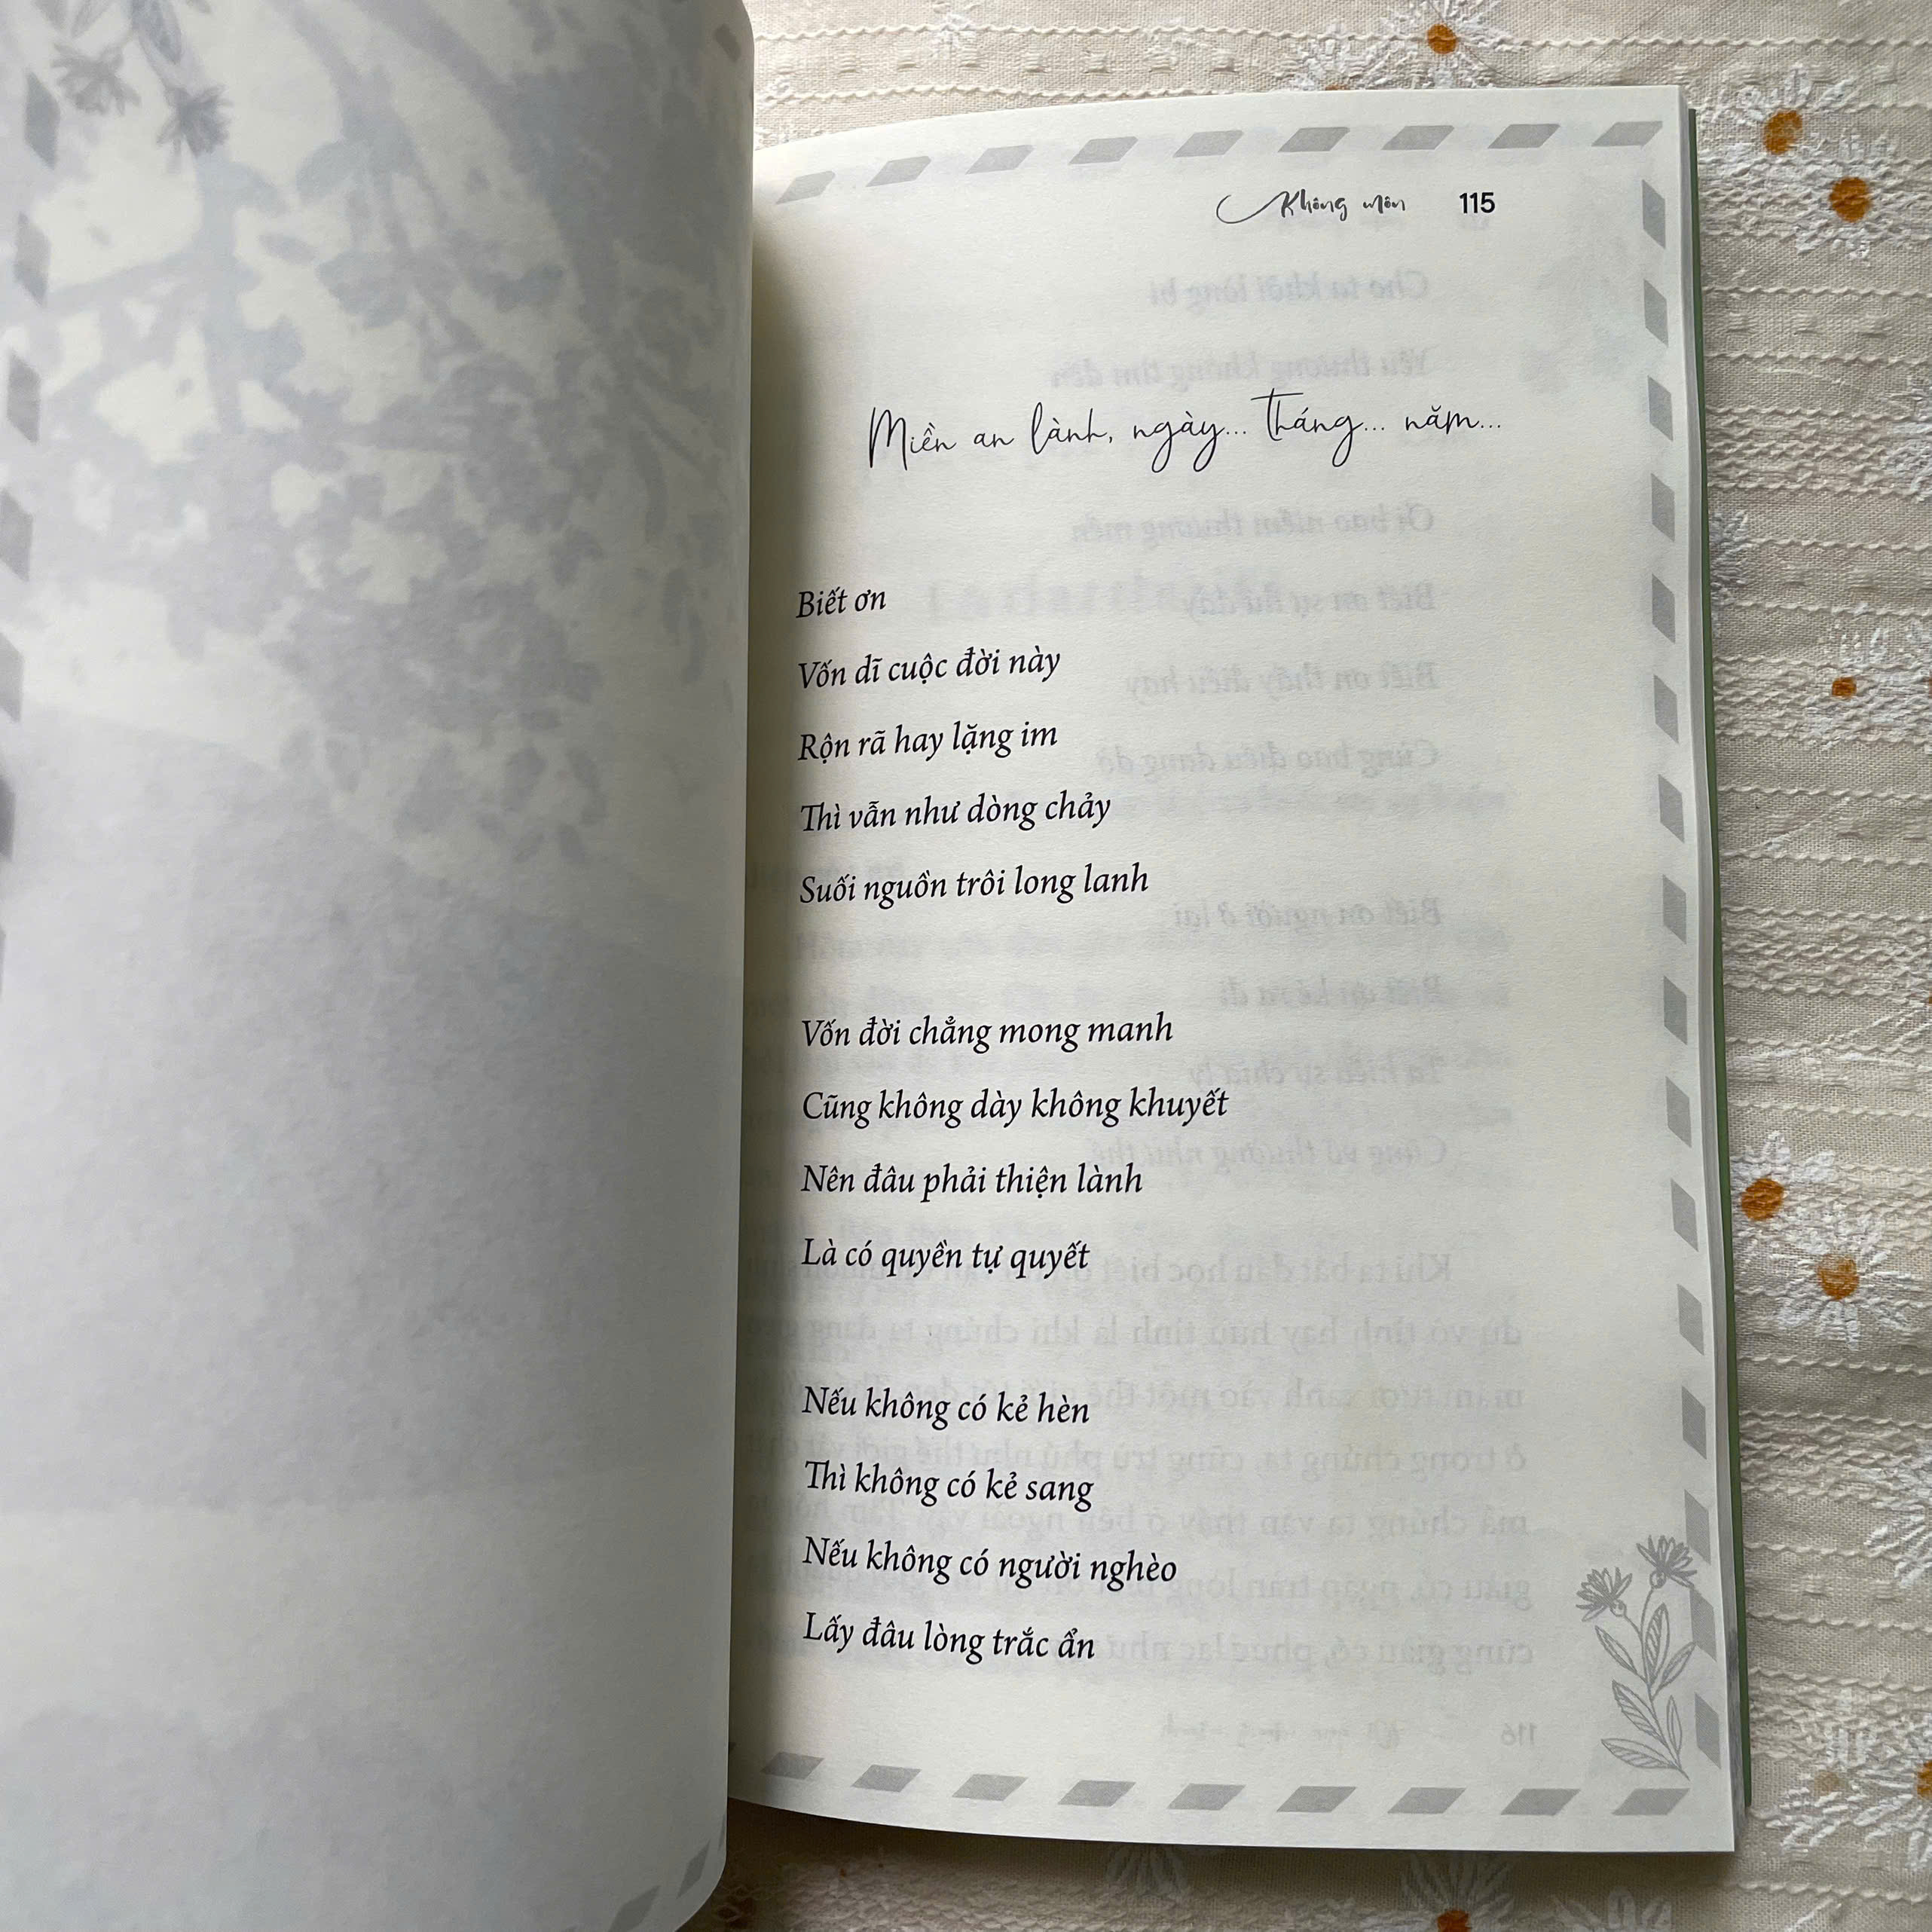 Không môn 115
Miền an lành, ngày... tháng... năm...
Biết ơn
Vốn dĩ cuộc đời này
Rộn rã hay lặng im
Thì vẫn như dòng chảy
Suối nguồn trôi long lanh
Vốn đời chẳng mong manh
Cũng không dày không khuyết
Nên đâu phải thiện lành
Là có quyền tự quyết
Nếu không có kẻ hèn
Thì không có kẻ sang
Nếu không có người nghèo
Lấy đâu lòng trắc ẩn